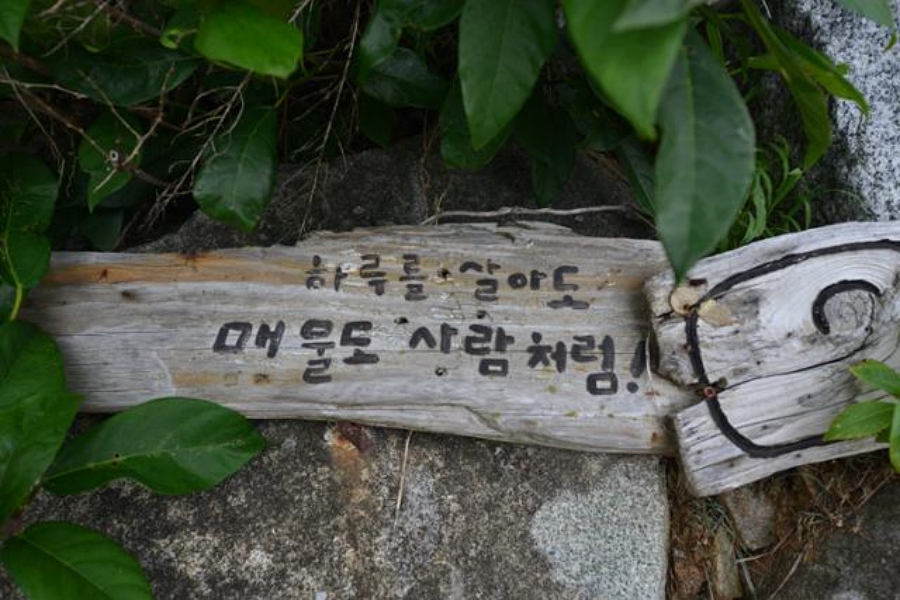 하루를 살아도
매물도 사람처럼!